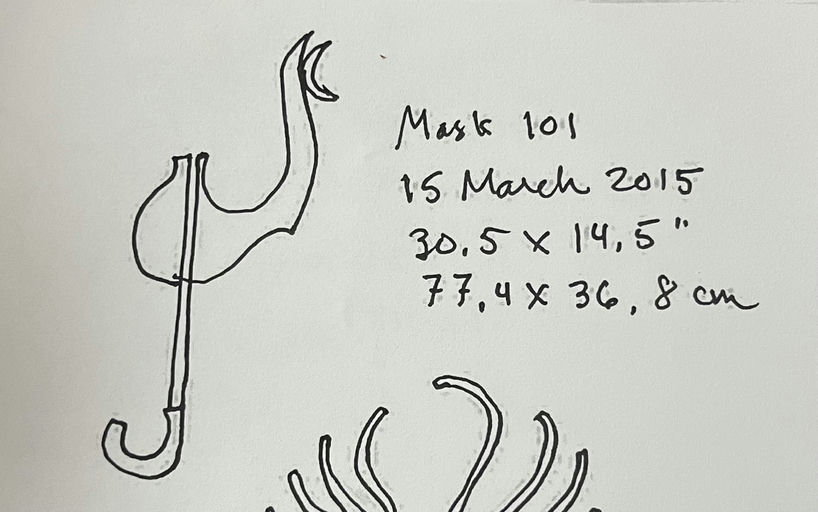 Mask 101
15 March 2015
30.5 x 14.5"
77.4 x 36.8 cm